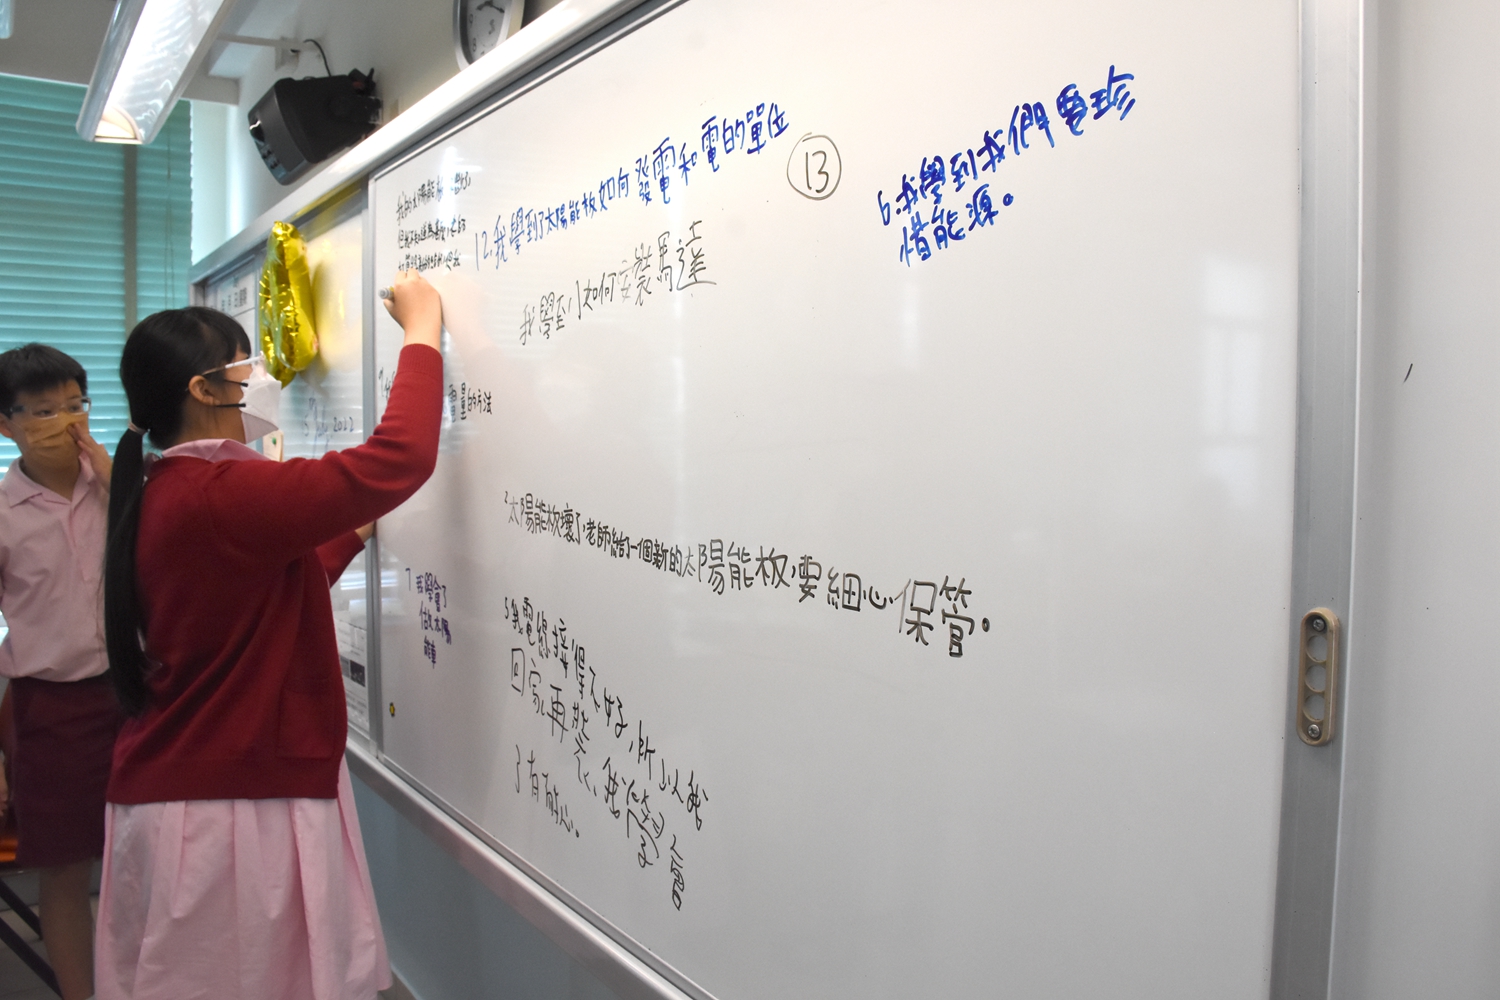 我的太陽能
12.我學到了太陽能板如何發電和電的單位
13
我學到如何安裝馬達
6.我學到我們要珍
惜能源。
電量的方法
2022
2太陽能板壞了,老師給了一個新的太陽能板,要細心保管。
7 我學會了
做太陽
能車
5我電線接得不好,所以我
回家再裝、我學會
了有耐心。